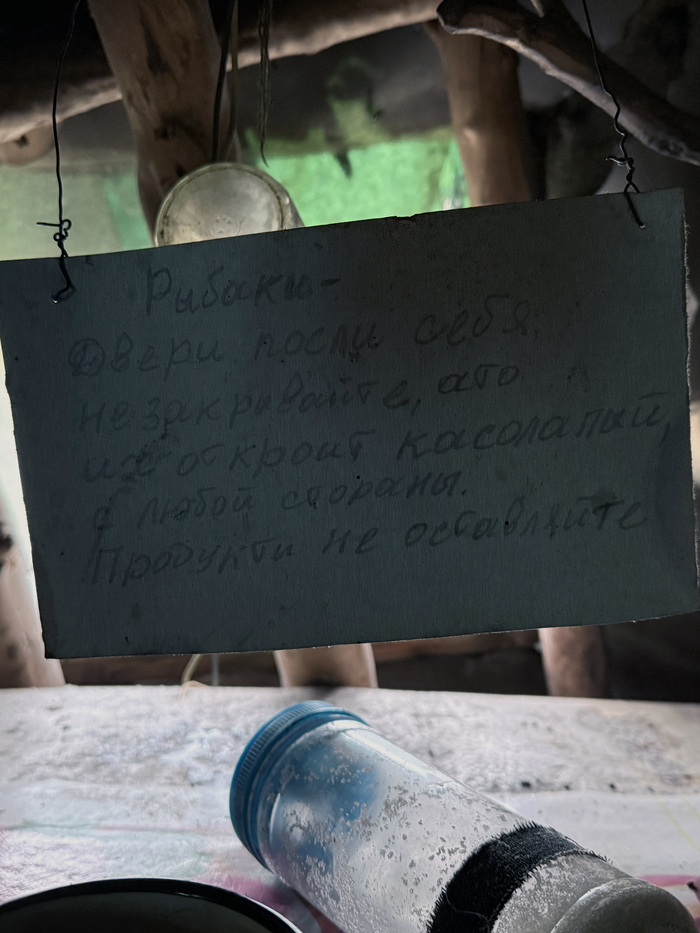 Рыбаки-
Двери посли себя
незакравайте, ато
их откроит касолапый,
с любой стораны.
Продукти не оставляйте